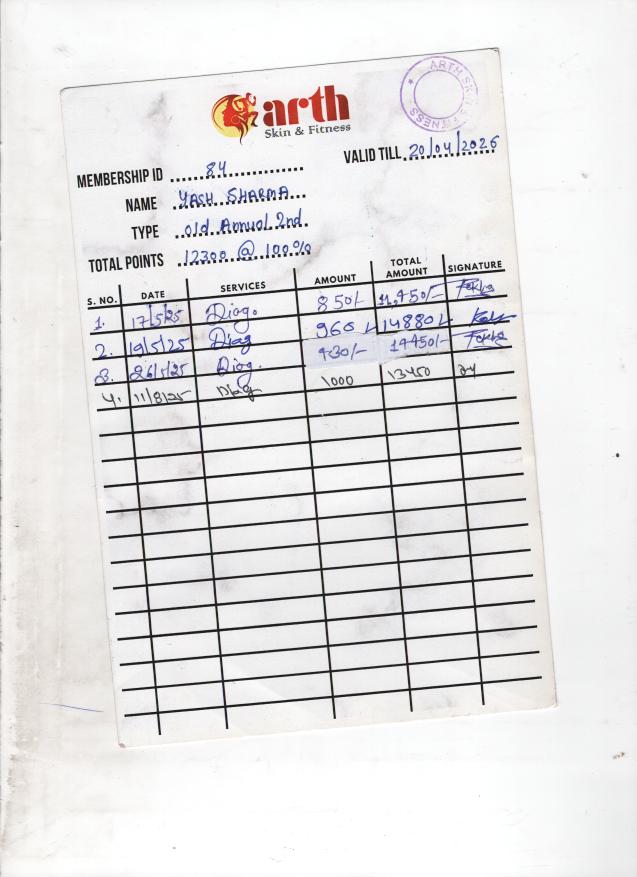 arth
Skin & Fitness
ARTH SKIN & FITNESS
VALID TILL 20/04/2026
MEMBERSHIP ID 84
NAME YASH SHARMA
TYPE old Annual 2nd
TOTAL POINTS 12300 @ 100%
S. NO. DATE SERVICES AMOUNT TOTAL AMOUNT SIGNATURE
1. 17/5/25 Diag. 850/-
2. 19/5/25 Diag 960/- 14880/-
3. 26/5/25 Diag. 430/- 14450/-
4. 11/8/25 Diag 1000 13450